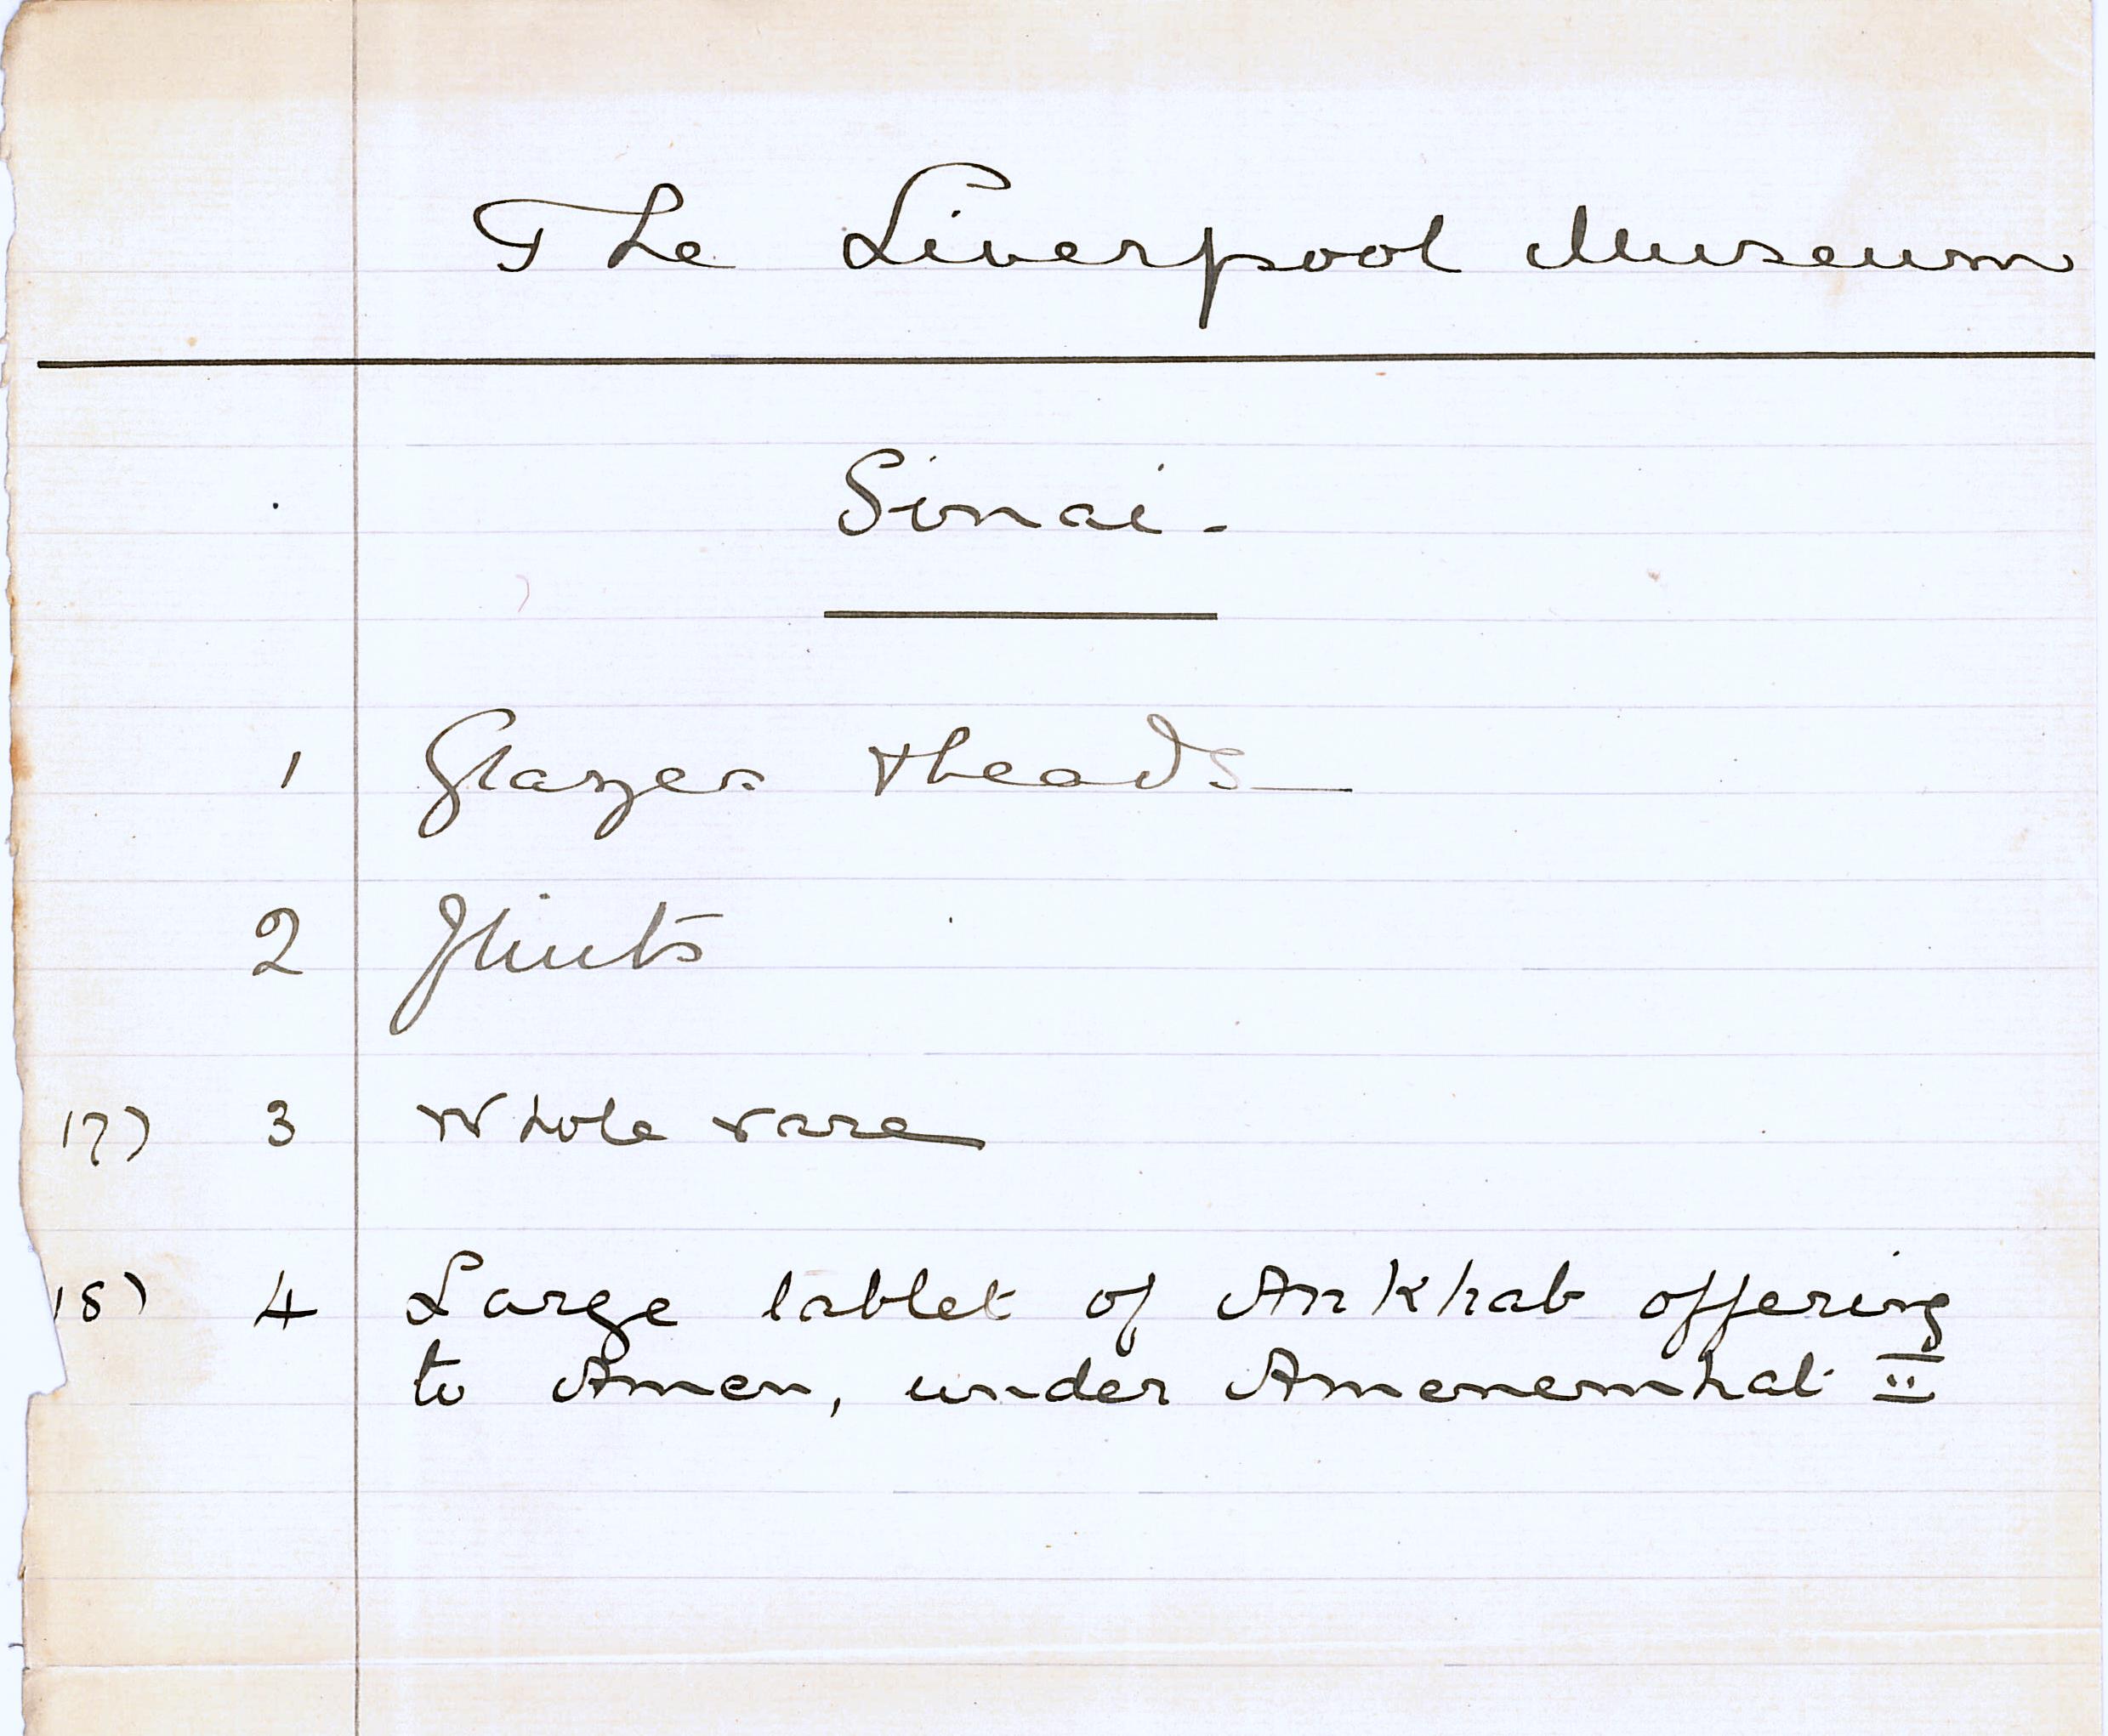 The Liverpool Museum
Sinai.
1 Glazes + beads
2 Flints
17) 3 Whole vase
18) 4 Large tablet of Ankhab offering
to Amen, under Amenemhat II